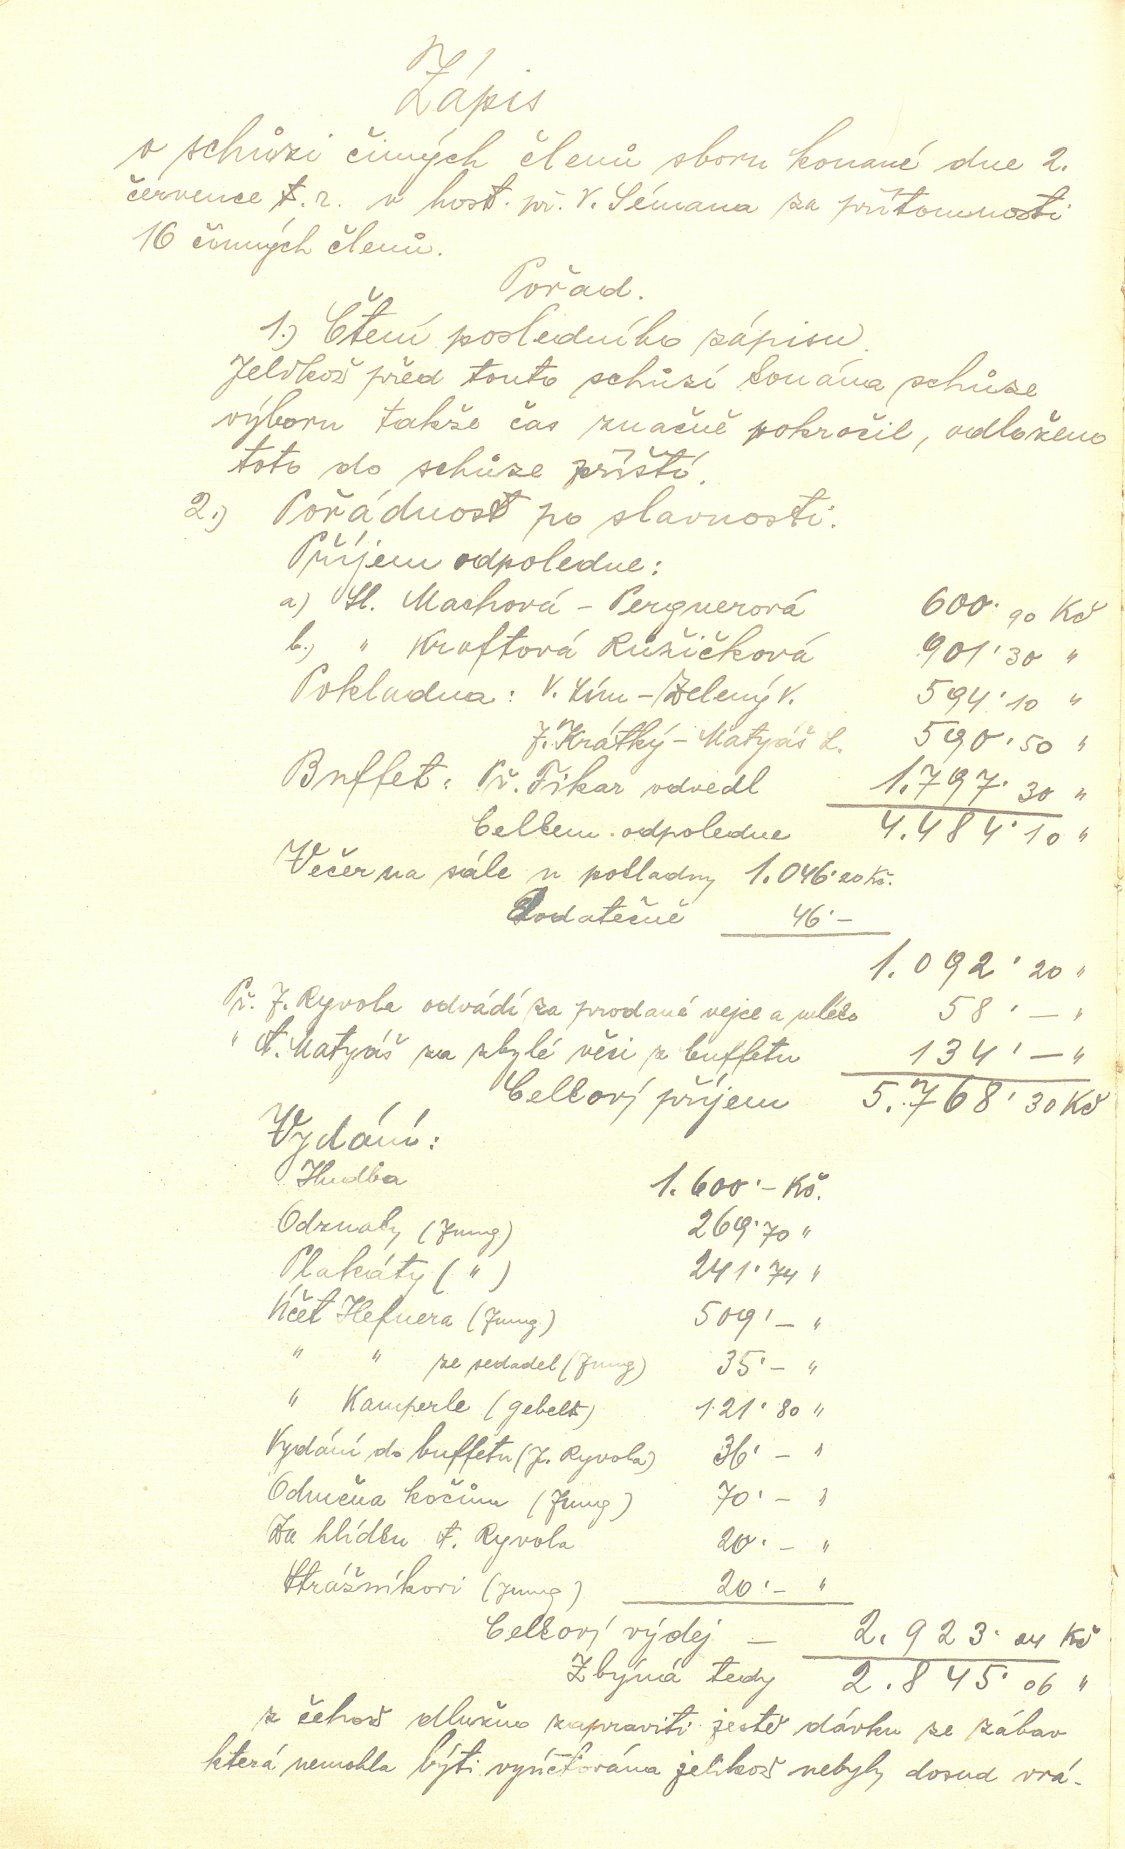 Zápis
o schůzi činných členů sboru konané dne 2.
července t. r. v host. př. V. Sémana za přítomnosti
16 činných členů.
Pořad.
1.) Čtení posledního zápisu.
Jelikož před touto schůzí konána schůze
výboru takže čas značně pokročil, odloženo
toto do schůze příští.
2.) Pořádnost po slavnosti.
Příjem odpoledne:
a) Sl. Machová – Pergnerová 600·90 Kč
b.) " Kraftová Růžičková 901·30 "
Pokladna: V. Lím – Zelený V. 594·10 "
J. Krátký – Matyáš L. 590·50 "
Buffet: Př. Fikar odvedl 1.797·30 "
Celkem odpoledne 4.484·10 "
Večer na sále u pokladny 1.046·20 Kč.
Dodatečně 46·–
1.092·20 "
Př. J. Ryvola odvádí za prodané vejce a mléko 58·– "
" A. Matyáš za zbylé věci z buffetu 134·– "
Celkový příjem 5.768·30 Kč
Vydání:
Hudba 1.600·– Kč.
Odznaky (Jung) 269·70 "
Plakáty ( " ) 241·74 "
Účet Hefnera (Jung) 509·– "
" " ze sedadel (Jung) 35·– "
" Kamperle (Gebelt) 121·80 "
Vydání do buffetu (J. Ryvola) 36·– "
Odměna kočímu (Jung) 70·– "
Za hlídku A. Ryvola 20·– "
Strážníkovi (Jung) 20·– "
Celkový výdej — 2.923·24 Kč
Zbývá tedy 2.845·06 "
z čehož dlužno zapraviti ještě dávku ze zábav
která nemohla býti vyúčtována jelikož nebyly dosud vrá-